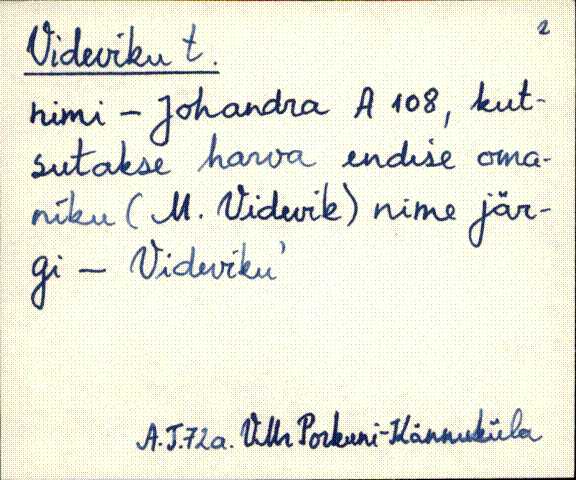 2
Videviku t.
nimi – Johandra A 108, kut-
sutakse harva endise oma-
niku (M. Videvik) nime jär-
gi – Videviku'
A.J.72a. VMr Porkuni-Kännuküla